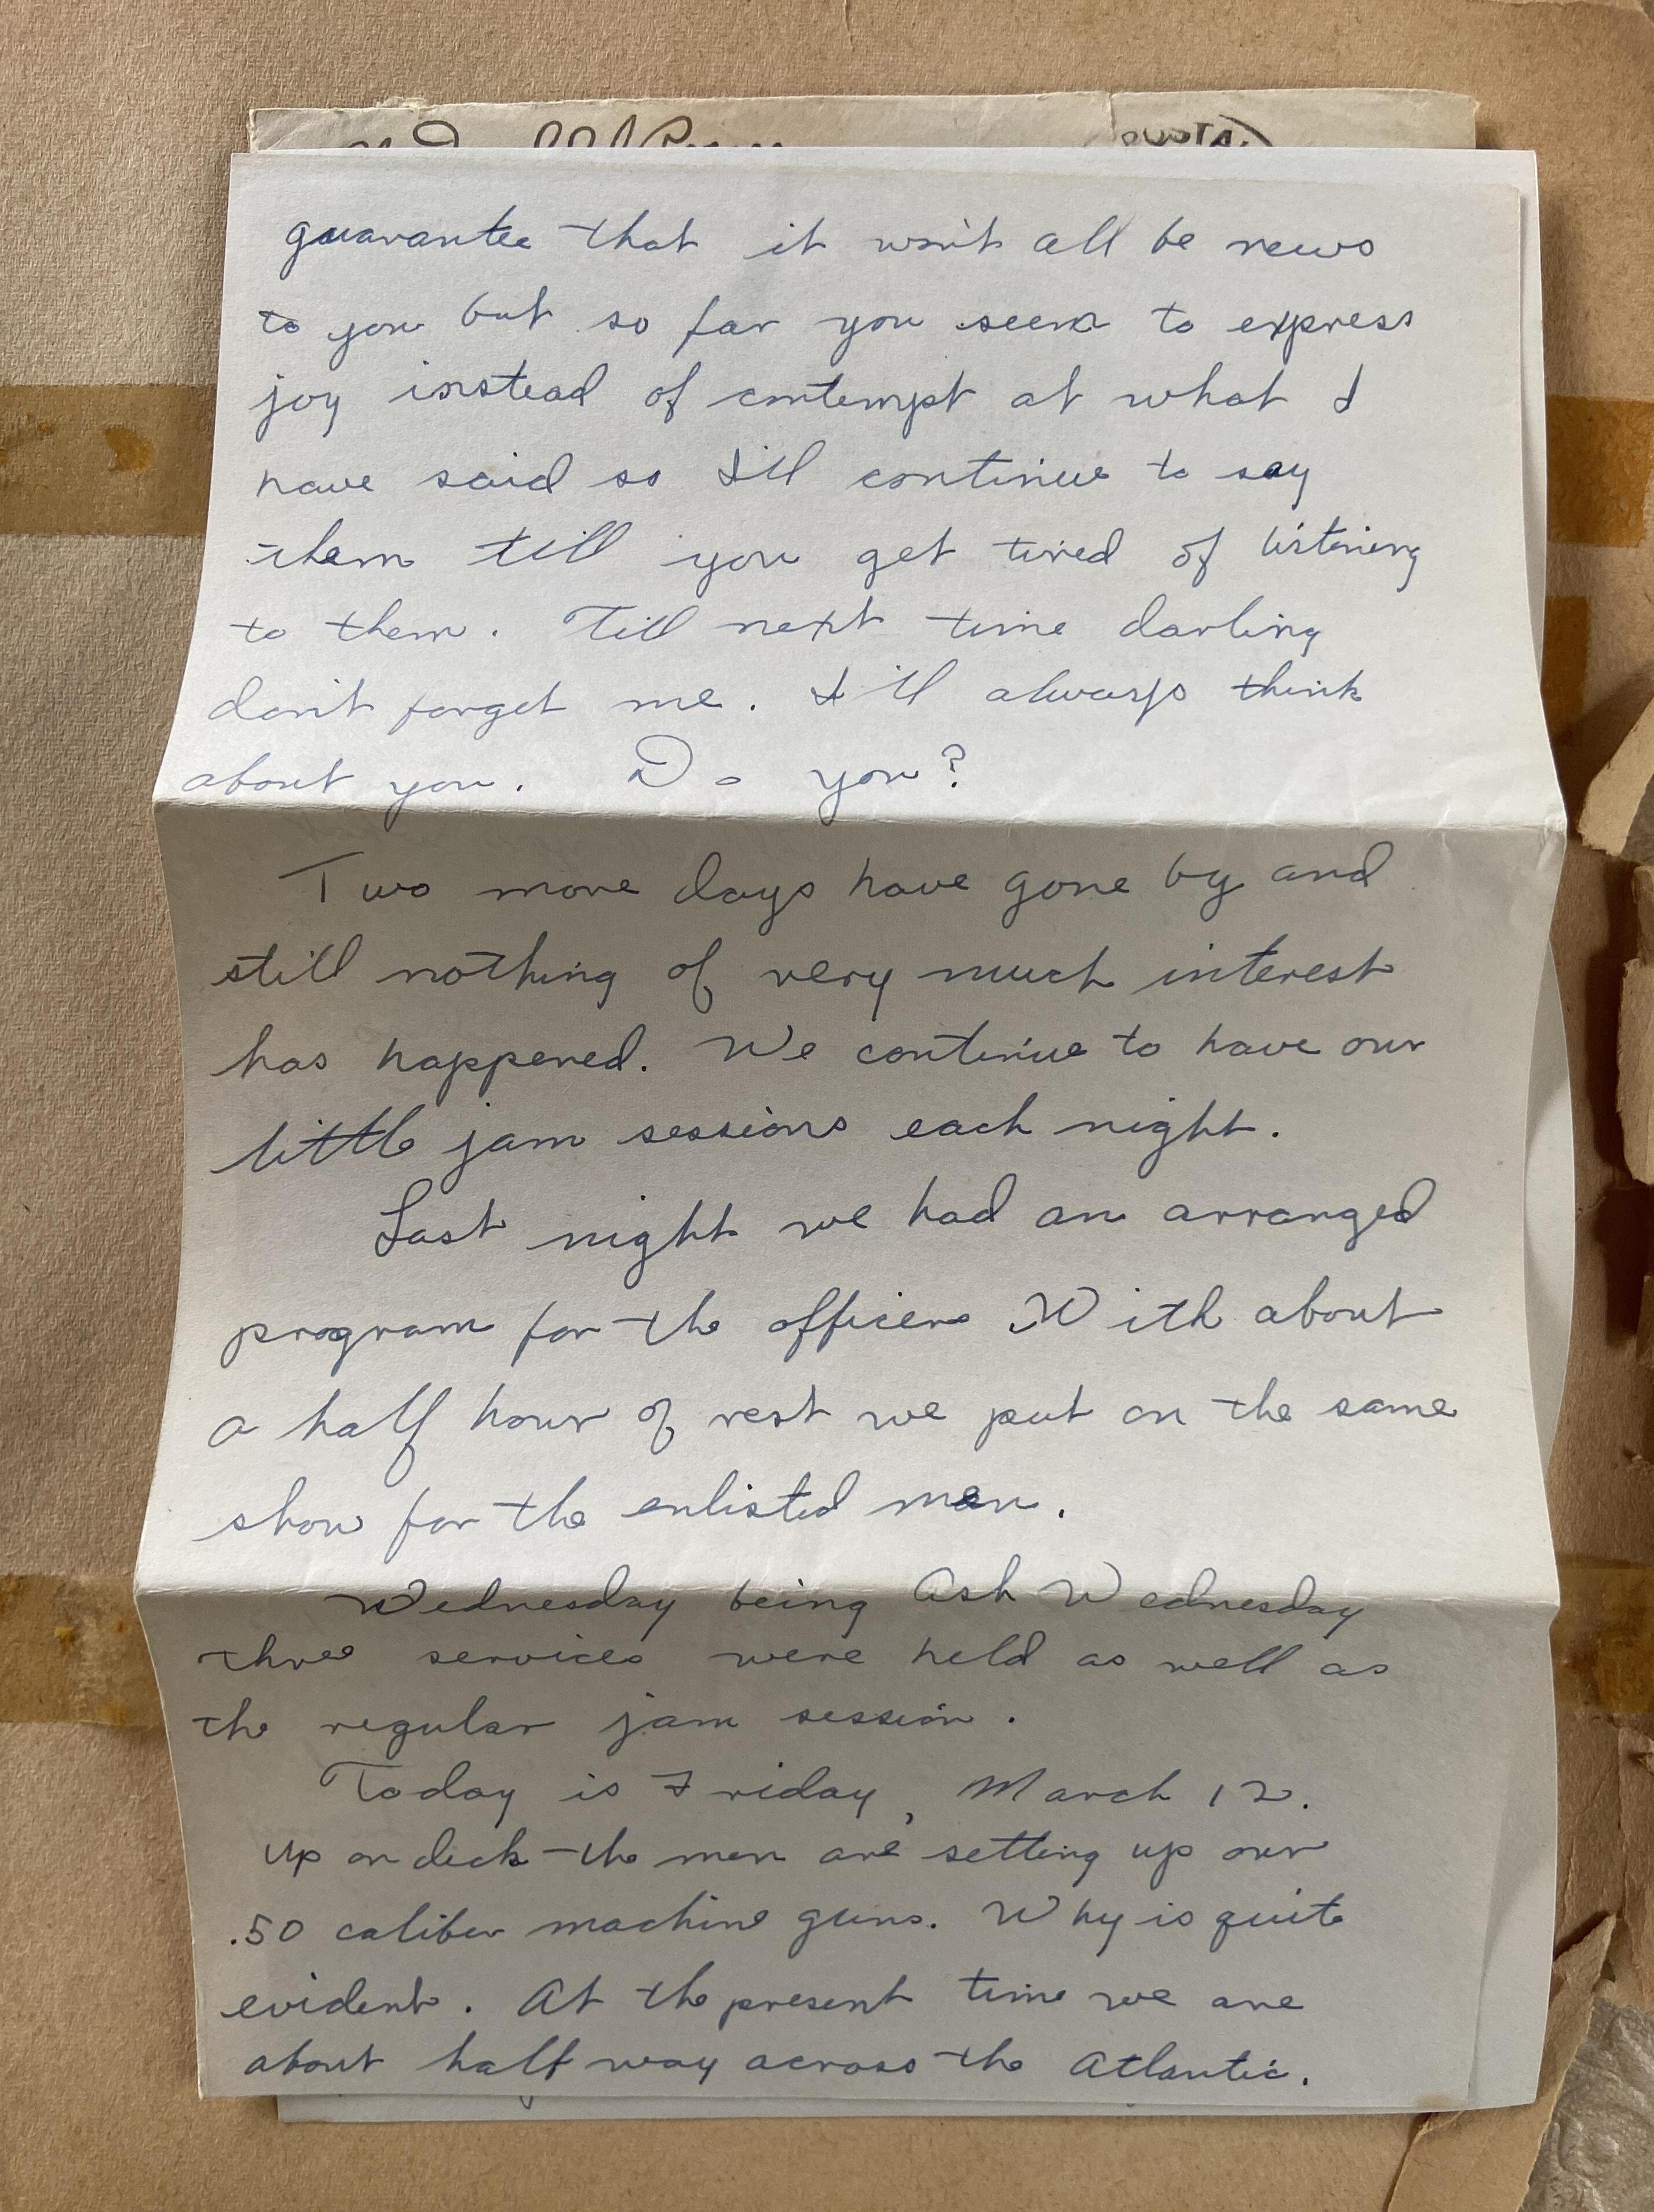 guarantee that it won't all be news
to you but so far you seem to express
joy instead of contempt at what I
have said so I'll continue to say
them till you get tired of listening
to them. Till next time darling
don't forget me. I'll always think
about you. Do you?
Two more days have gone by and
still nothing of very much interest
has happened. We continue to have our
little jam sessions each night.
Last night we had an arranged
program for the officers With about
a half hour of rest we put on the same
show for the enlisted men.
Wednesday being Ash Wednesday
three services were held as well as
the regular jam session.
Today is Friday, March 12.
Up on deck the men are setting up our
.50 caliber machine guns. Why is quite
evident. At the present time we are
about half way across the Atlantic.